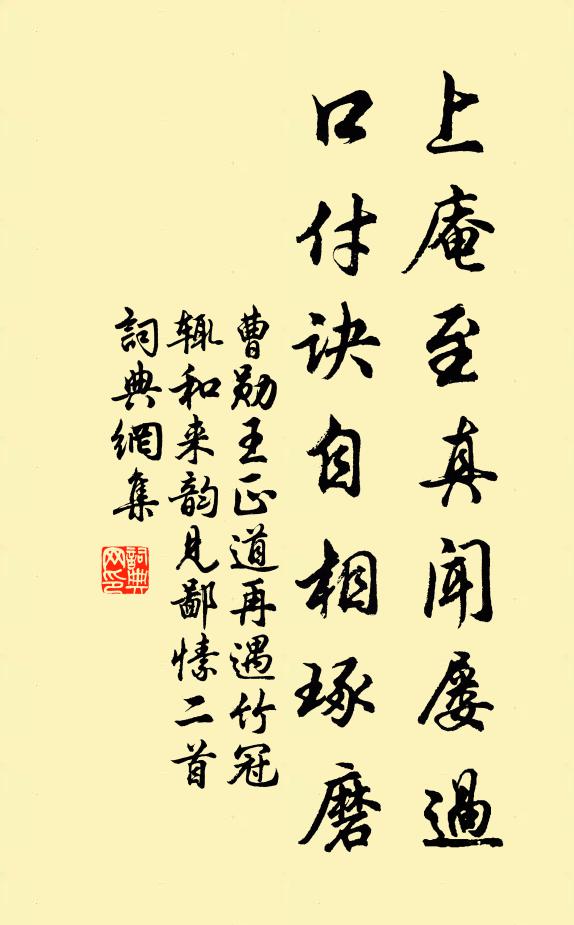 上庵至真闻屡过
口付诀自相琢磨
曹勋王正道再遇竹冠
辄和来韵见鄙愫二首
詞典網集
詞典网印